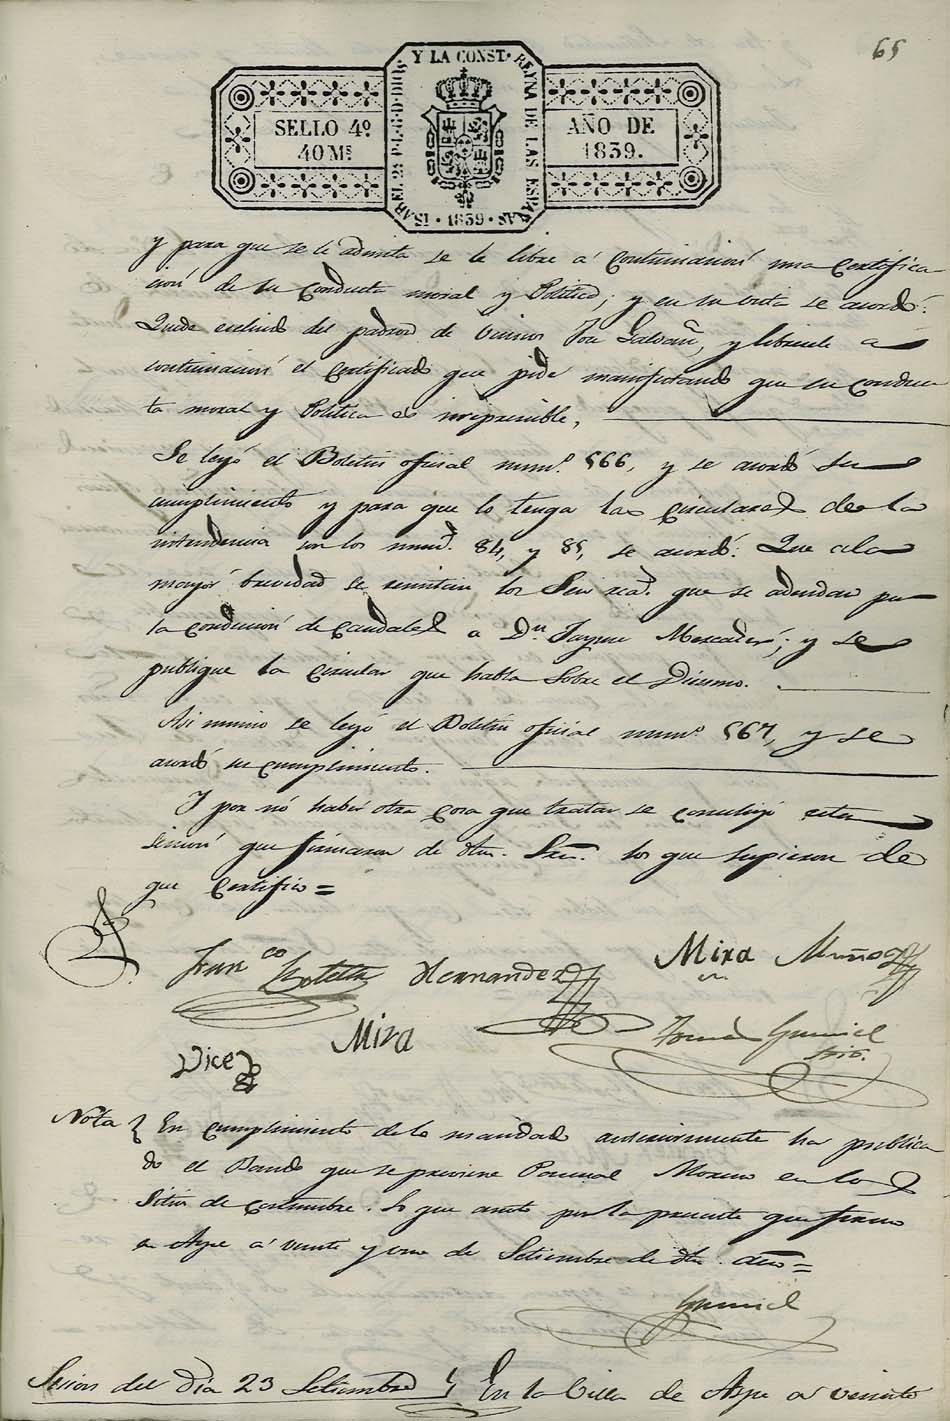 65
ISABEL 2ª P. L. G. D. DIOS Y LA CONST. REYNA DE LAS ESPAÑAS
SELLO 4º
40 Ms
AÑO DE
1839.
· 1839 ·
y para que se le admita se le libre a continuacion una certifica
cion de su conducta moral y Politica; y en su vista se acordó:
Quede escluido del padron de vecinos José Galvañ, y libresele a
continuacion el certificado que pide manifestando que su conduc
ta moral y Politica es irreprensible,
Se leyó el Boletin oficial num.º 566, y se acordó su
cumplimiento y para que lo tenga las circulares de la
intendencia son los num.s 84, y 85, se acordó: Que a la
mayor brevedad se remitan los Seis rea.s que se adeudan por
la conducion de caudales a D.n Jayme Mercader; y se
publique la circular que habla sobre el Diesmo.
Asi mismo se leyó el Boletin oficial num.º 567, y se
acordó su cumplimiento.
Y por nó haber otra cosa que tratar se concluyó esta
sesion que firmaron de dhos. Sres. los que supieron de
que certifico=
Fran.co Botella Hernandez Mira Muñoz
Vice Mira Tomás Gumiel
Srio.
Nota } En cumplimiento de lo mandado anteriormente ha publica
do el Bando que se previene Pascual Moreno en los
Sitios de costumbre. Lo que anoto por la presente que firmo
en Aspe a veinte y uno de Setiembre de dho. año=
Gumiel
Sesion del dia 23 Setiembre } En la Villa de Aspe a veinte